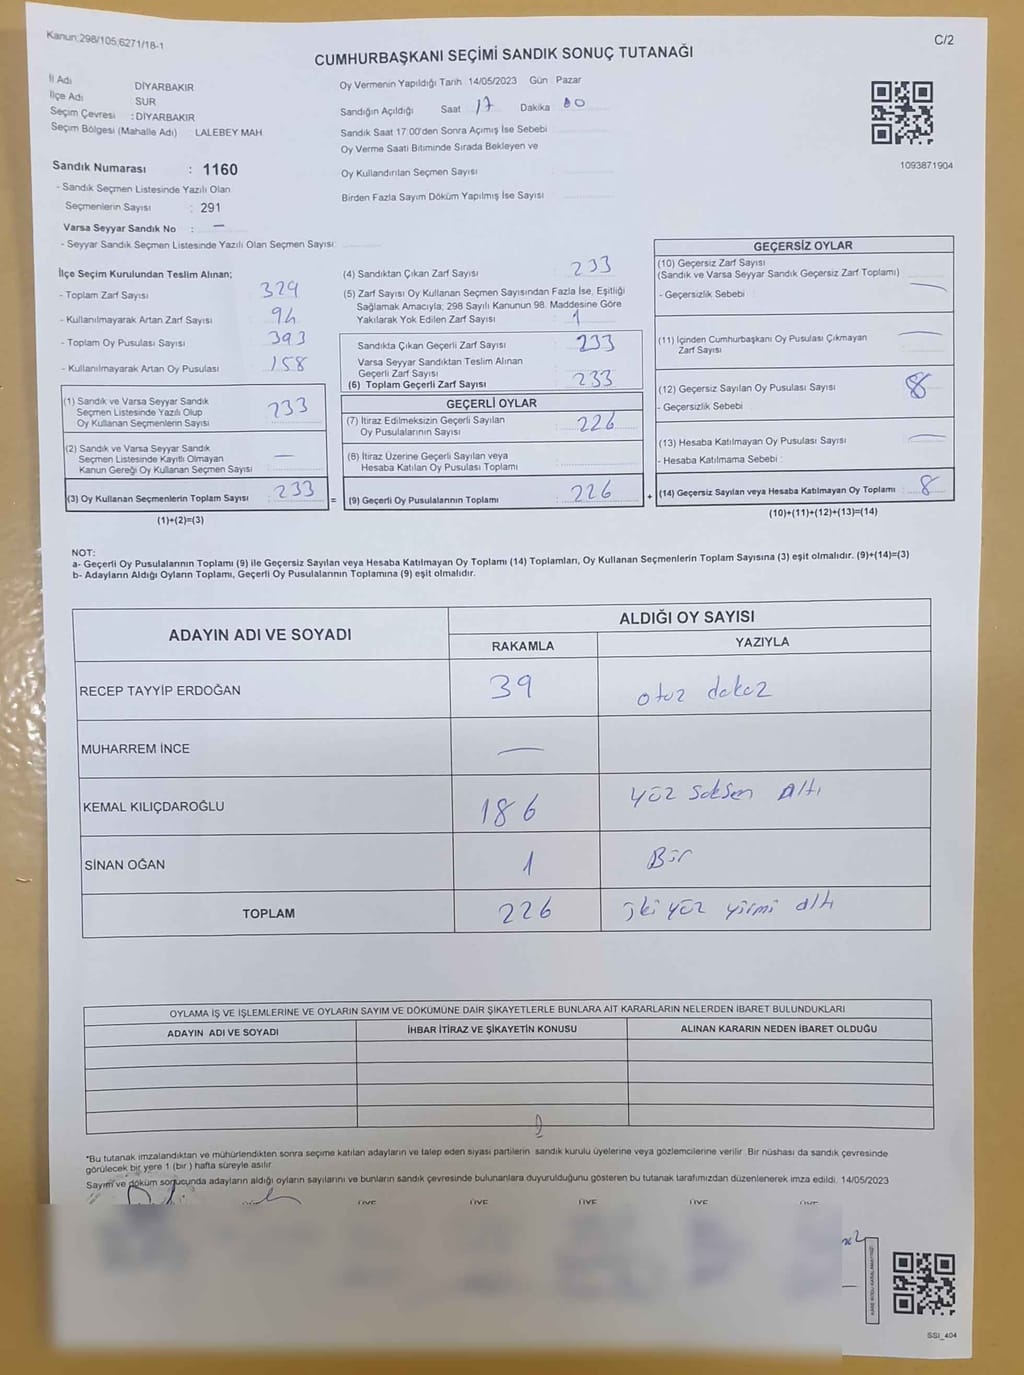 Kanun:298/105;6271/18-1
C/2
CUMHURBAŞKANI SEÇİMİ SANDIK SONUÇ TUTANAĞI
İl Adı : DİYARBAKIR
İlçe Adı : SUR
Seçim Çevresi : DİYARBAKIR
Seçim Bölgesi (Mahalle Adı) : LALEBEY MAH
Sandık Numarası : 1160
- Sandık Seçmen Listesinde Yazılı Olan
Seçmenlerin Sayısı : 291
Varsa Seyyar Sandık No : —
- Seyyar Sandık Seçmen Listesinde Yazılı Olan Seçmen Sayısı:
Oy Vermenin Yapıldığı Tarih : 14/05/2023 Gün : Pazar
Sandığın Açıldığı Saat : 17 Dakika : 00
Sandık Saat 17:00'den Sonra Açımış İse Sebebi :
Oy Verme Saati Bitiminde Sırada Bekleyen ve
Oy Kullandırılan Seçmen Sayısı :
Birden Fazla Sayım Döküm Yapılmış İse Sayısı :
1093871904
İlçe Seçim Kurulundan Teslim Alınan;
- Toplam Zarf Sayısı : 329
- Kullanılmayarak Artan Zarf Sayısı : 94
- Toplam Oy Pusulası Sayısı : 393
- Kullanılmayarak Artan Oy Pusulası : 158
(1) Sandık ve Varsa Seyyar Sandık
Seçmen Listesinde Yazılı Olup
Oy Kullanan Seçmenlerin Sayısı : 233
(2) Sandık ve Varsa Seyyar Sandık
Seçmen Listesinde Kayıtlı Olmayan
Kanun Gereği Oy Kullanan Seçmen Sayısı : —
(3) Oy Kullanan Seçmenlerin Toplam Sayısı : 233
(1)+(2)=(3)
=
(4) Sandıktan Çıkan Zarf Sayısı : 233
(5) Zarf Sayısı Oy Kullanan Seçmen Sayısından Fazla İse, Eşitliği
Sağlamak Amacıyla; 298 Sayılı Kanunun 98. Maddesine Göre
Yakılarak Yok Edilen Zarf Sayısı : 1
Sandıkta Çıkan Geçerli Zarf Sayısı : 233
Varsa Seyyar Sandıktan Teslim Alınan
Geçerli Zarf Sayısı :
(6) Toplam Geçerli Zarf Sayısı : 233
GEÇERLİ OYLAR
(7) İtiraz Edilmeksizin Geçerli Sayılan
Oy Pusulalarının Sayısı : 226
(8) İtiraz Üzerine Geçerli Sayılan veya
Hesaba Katılan Oy Pusulası Toplamı :
(9) Geçerli Oy Pusulalarının Toplamı : 226
+
GEÇERSİZ OYLAR
(10) Geçersiz Zarf Sayısı
(Sandık ve Varsa Seyyar Sandık Geçersiz Zarf Toplamı) : —
- Geçersizlik Sebebi :
(11) İçinden Cumhurbaşkanı Oy Pusulası Çıkmayan
Zarf Sayısı : —
(12) Geçersiz Sayılan Oy Pusulası Sayısı : 8
- Geçersizlik Sebebi :
(13) Hesaba Katılmayan Oy Pusulası Sayısı : —
- Hesaba Katılmama Sebebi :
(14) Geçersiz Sayılan veya Hesaba Katılmayan Oy Toplamı : 8
(10)+(11)+(12)+(13)=(14)
NOT:
a- Geçerli Oy Pusulalarının Toplamı (9) ile Geçersiz Sayılan veya Hesaba Katılmayan Oy Toplamı (14) Toplamları, Oy Kullanan Seçmenlerin Toplam Sayısına (3) eşit olmalıdır. (9)+(14)=(3)
b- Adayların Aldığı Oyların Toplamı, Geçerli Oy Pusulalarının Toplamına (9) eşit olmalıdır.
ADAYIN ADI VE SOYADI
ALDIĞI OY SAYISI
RAKAMLA YAZIYLA
RECEP TAYYİP ERDOĞAN 39 otuz dokuz
MUHARREM İNCE —
KEMAL KILIÇDAROĞLU 186 yüz seksen Altı
SİNAN OĞAN 1 Bir
TOPLAM 226 iki yüz yirmi altı
OYLAMA İŞ VE İŞLEMLERİNE VE OYLARIN SAYIM VE DÖKÜMÜNE DAİR ŞİKAYETLERLE BUNLARA AİT KARARLARIN NELERDEN İBARET BULUNDUKLARI
ADAYIN ADI VE SOYADI İHBAR İTİRAZ VE ŞİKAYETİN KONUSU ALINAN KARARIN NEDEN İBARET OLDUĞU
*Bu tutanak imzalandıktan ve mühürlendikten sonra seçime katılan adayların ve talep eden siyasi partilerin sandık kurulu üyelerine veya gözlemcilerine verilir. Bir nüshası da sandık çevresinde
görülecek bir yere 1 (bir ) hafta süreyle asılır.
Sayım ve döküm sonucunda adayların aldığı oyların sayılarını ve bunların sandık çevresinde bulunanlara duyurulduğunu gösteren bu tutanak tarafımızdan düzenlenerek imza edildi. 14/05/2023
ÜYE ÜYE ÜYE ÜYE ÜYE
SSİ_404